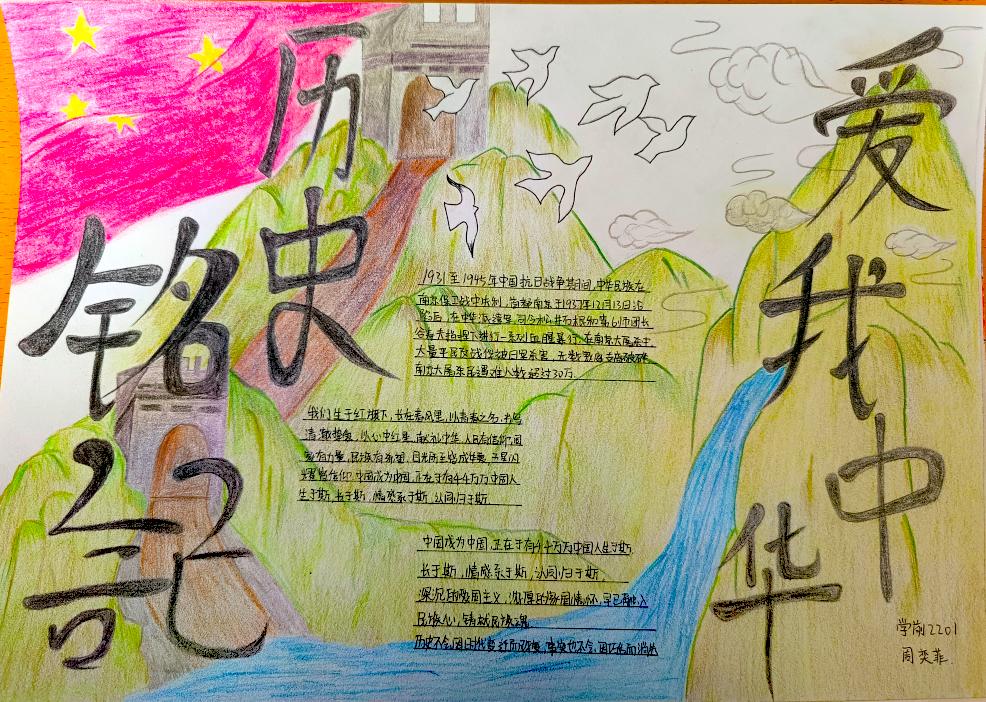 铭记历史
爱我中华
1931至1945年中国抗日战争期间,中华民族在
南京保卫战中失利,首都南京于1937年12月13日沦
陷后,在华中派遣军司令松井石根和第6师团长
谷寿夫指挥下进行一系列血腥暴行,在南京大屠杀中
大量平民及战俘被日军杀害,无数家庭支离破碎
南京大屠杀遇难人数超过30万.
我们生于红旗下,长在春风里,以青春之名,书写
清澈挚爱,以心中红星,献礼中华,人民有信仰,国
家有力量,民族有希望,目光所至皆成华夏,五星闪
耀皆信仰.中国成为中国,正在于有14万万中国人
生于斯,长于斯,情感系于斯,认同归于斯.
中国成为中国,正在于有14万万中国人生于斯.
长于斯,情感系于斯,认同归于斯.
深沉的爱国主义,浓厚的家国情怀,早已融入
民族心,铸就民族魂
历史不会因时代变迁而改变,事实也不会因巧舌而消失
学前2201
周奕菲.